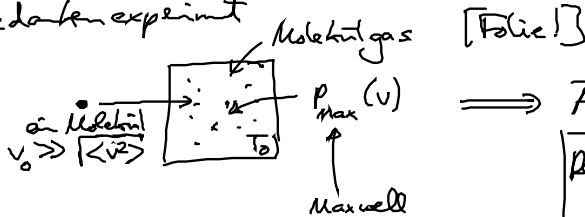 dankenexperiment
Molekülgas [Folie!]
ein Molekül
v₀ ≫ √<v²>
T₀
P_Max (v) ⟹
Maxwell